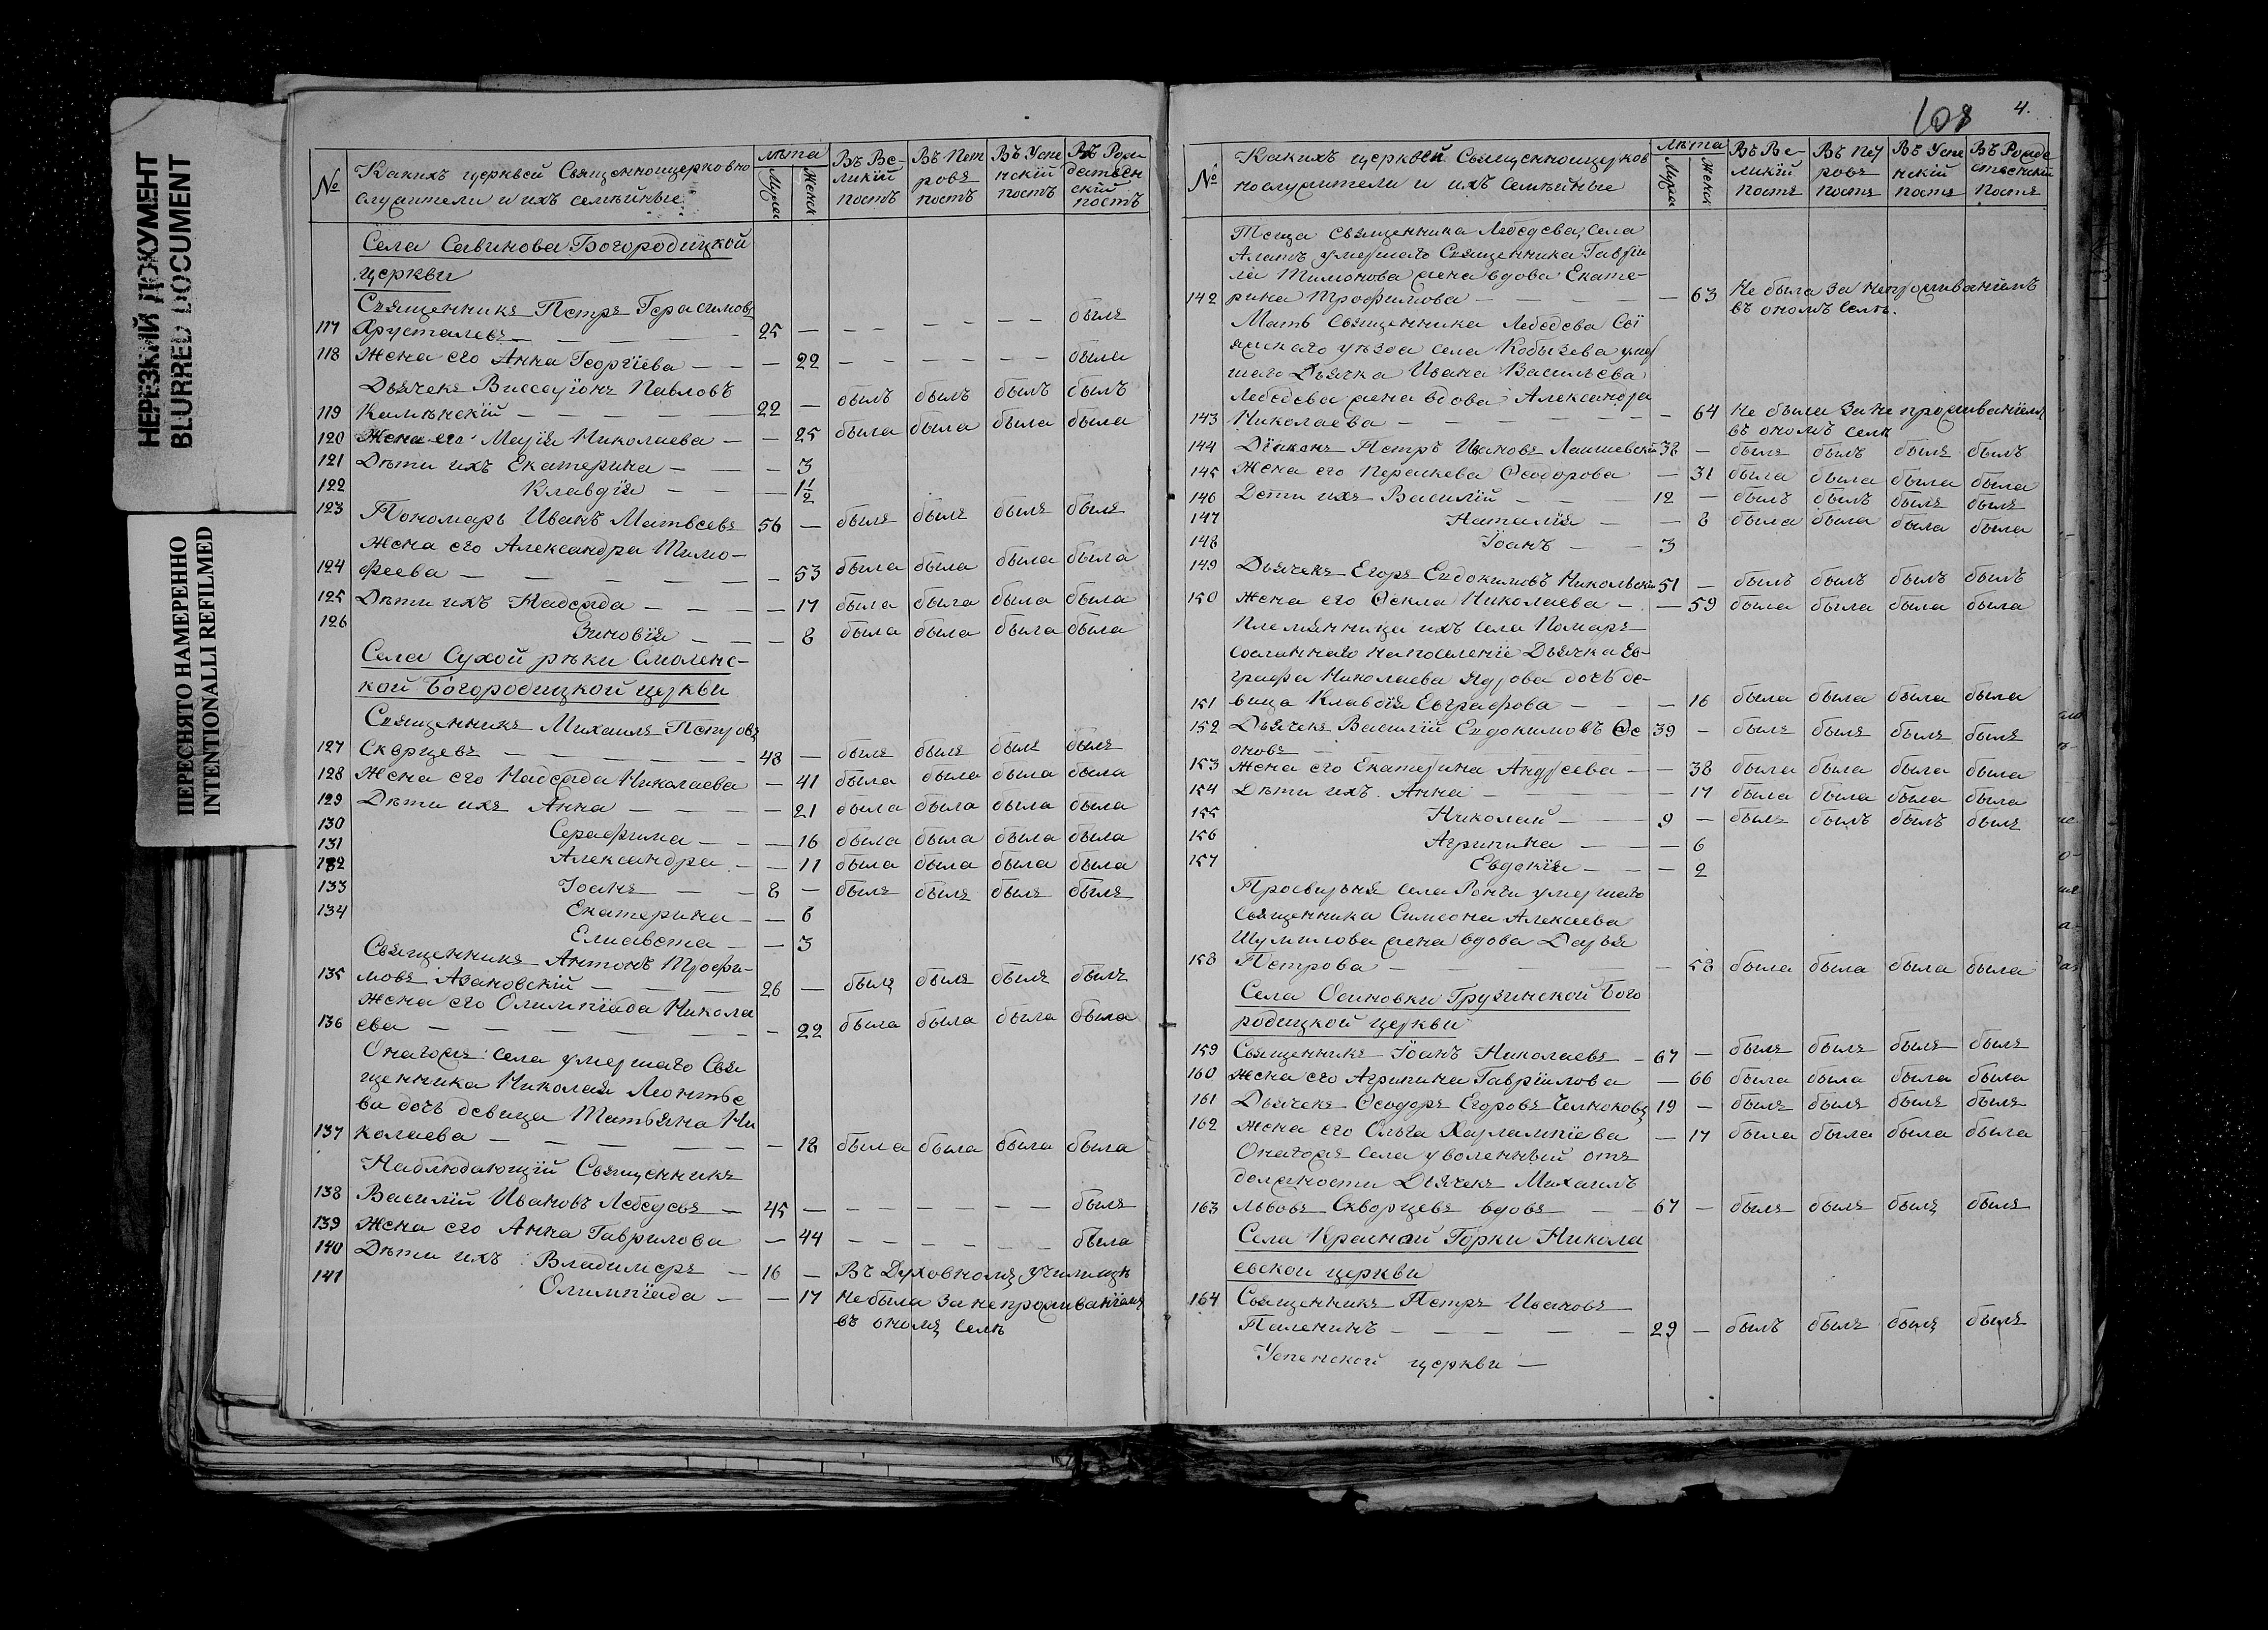 НЕРЕЗКИЙ ДОКУМЕНТ
BLURRED DOCUMENT
ПЕРЕСНЯТО НАМЕРЕННО
INTENTIONALLI REFILMED
№ Какихъ церквей Священноцерковно лѣта Въ Ве- Въ Пет Въ Успе Въ Рож
служители и ихъ семейные Мужеск Женск ликій ровъ нскій дествен
постъ постъ постъ скій
постъ
Села Савинова Богородицкой
церкви
Священникъ Петръ Герасимовъ
117 Хрусталевъ — 25 — — — — былъ
118 Жена его Анна Георгіева — — 22 — — — была
Дьячекъ Виссаріонъ Павловъ
119 Каменскій — 22 — былъ былъ былъ былъ
120 Жена его Марія Николаева — — 25 была была была была
121 Дѣти ихъ Екатерина — — 3
122 Клавдія — — 1½
123 Пономарь Иванъ Матвеевъ 56 — былъ былъ былъ былъ
Жена его Александра Тимо-
124 феева — — 53 была была была была
125 Дѣти ихъ Надежда — — 17 была была была была
126 Зиновія — — 8 была была была была
Села Сухой рѣки Смоленс-
кой Богородицкой церкви
Священникъ Михаилъ Петровъ
127 Скворцевъ — 48 — былъ былъ былъ былъ
128 Жена его Надежда Николаева — 41 была была была была
129 Дѣти ихъ Анна — — 21 была была была была
130 Серафима — — 16 была была была была
131 Александра — — 11 была была была была
132 Іоанъ — 8 — былъ былъ былъ былъ
133 Екатерина — — 6
134 Елисавета — — 3
Священникъ Антонъ Трофи-
135 мовъ Азановскій — 26 — былъ былъ былъ былъ
Жена его Олимпіада Никола
136 ева — — 22 была была была была
Онагожъ села умершаго Свя
щенника Николая Леонтье
ва дочь девица Татьяна Ни
137 колаева — — 18 была была была была
Наблюдающій Священникъ
138 Василій Ивановъ Лебедевъ — 45 — — — — былъ
139 Жена его Анна Гаврилова — 44 — — — была
140 Дѣти ихъ Владимеръ — 16 — Въ Духовномъ училищѣ
141 Олимпіада — — 17 Не была за непроживаніемъ
въ ономъ селѣ
108 4.
№ Какихъ церквей Священноцерков лѣта Въ Ве- Въ Пет Въ Успе Въ Рожде
нослужители и ихъ семейные Мужеск Женск ликій ровъ нскій ственскій
постъ постъ постъ постъ
Теща священника Лебедева, села
Алатъ умершаго Священника Гаврі
ла Тимонова жена вдова Екате-
142 рина Трофимова — — 63 Не была за непроживаніемъ
въ ономъ селѣ.
Мать Священника Лебедева Сві
яжскаго уѣзда села Кобызева умер
шаго Дьячка Ивана Васильева
Лебедева жена вдова Александра
143 Николаева — — 64 Не была за не проживаніемъ
въ ономъ селѣ
144 Діаконъ Петръ Ивановъ Лаишевскій 38 — былъ былъ былъ былъ
145 Жена его Параскева Ѳеодорова — 31 была была была была
146 Дети ихъ Василій — 12 — былъ былъ былъ былъ
147 Наталія — — 8 была была была была
148 Іоанъ — 3
149 Дьячекъ Егоръ Евдокимовъ Никольскій 51 — былъ былъ былъ былъ
150 Жена его Ѳекла Николаева — — 59 была была была была
Племянница ихъ села Помаръ
сосланнаго на поселеніе Дьячка Ев-
графа Николаева Ядрова дочь де-
151 вица Клавдія Евграфова — — 16 была была была была
152 Дьячекъ Василій Евдокимовъ Ѳе 39 — былъ былъ былъ былъ
оновъ —
153 Жена его Екатерина Андреева — — 38 была была была была
154 Дѣти ихъ Анна — — 17 была была была была
155 Николай — 9 — былъ былъ былъ былъ
156 Агрипина — — 6
157 Евдокія — — 2
Просвирьня села Ронги умершаго
священника Симеона Алексеева
Шумилова жена вдова Дарья
158 Петрова — — 58 была была была была
Села Осиновки Грузинской Бого
родицкой церкви
159 Священникъ Іоанъ Николаевъ — 67 — былъ былъ былъ былъ
160 Жена его Агрипина Гавріилова — 66 была была была была
161 Дьячекъ Ѳеодоръ Егоровъ Челноковъ 19 — былъ былъ былъ былъ
162 Жена его Ольга Харлампіева — 17 была была была была
Онагожъ села уволенный отъ
должности Дьячекъ Михаилъ
163 Львовъ Скворцевъ вдовъ — 67 — былъ былъ былъ былъ
Села Красной Горки Никола
евской церкви
164 Священникъ Петръ Ивановъ
Паленинъ — 29 — былъ былъ былъ былъ
Успенской церкви —